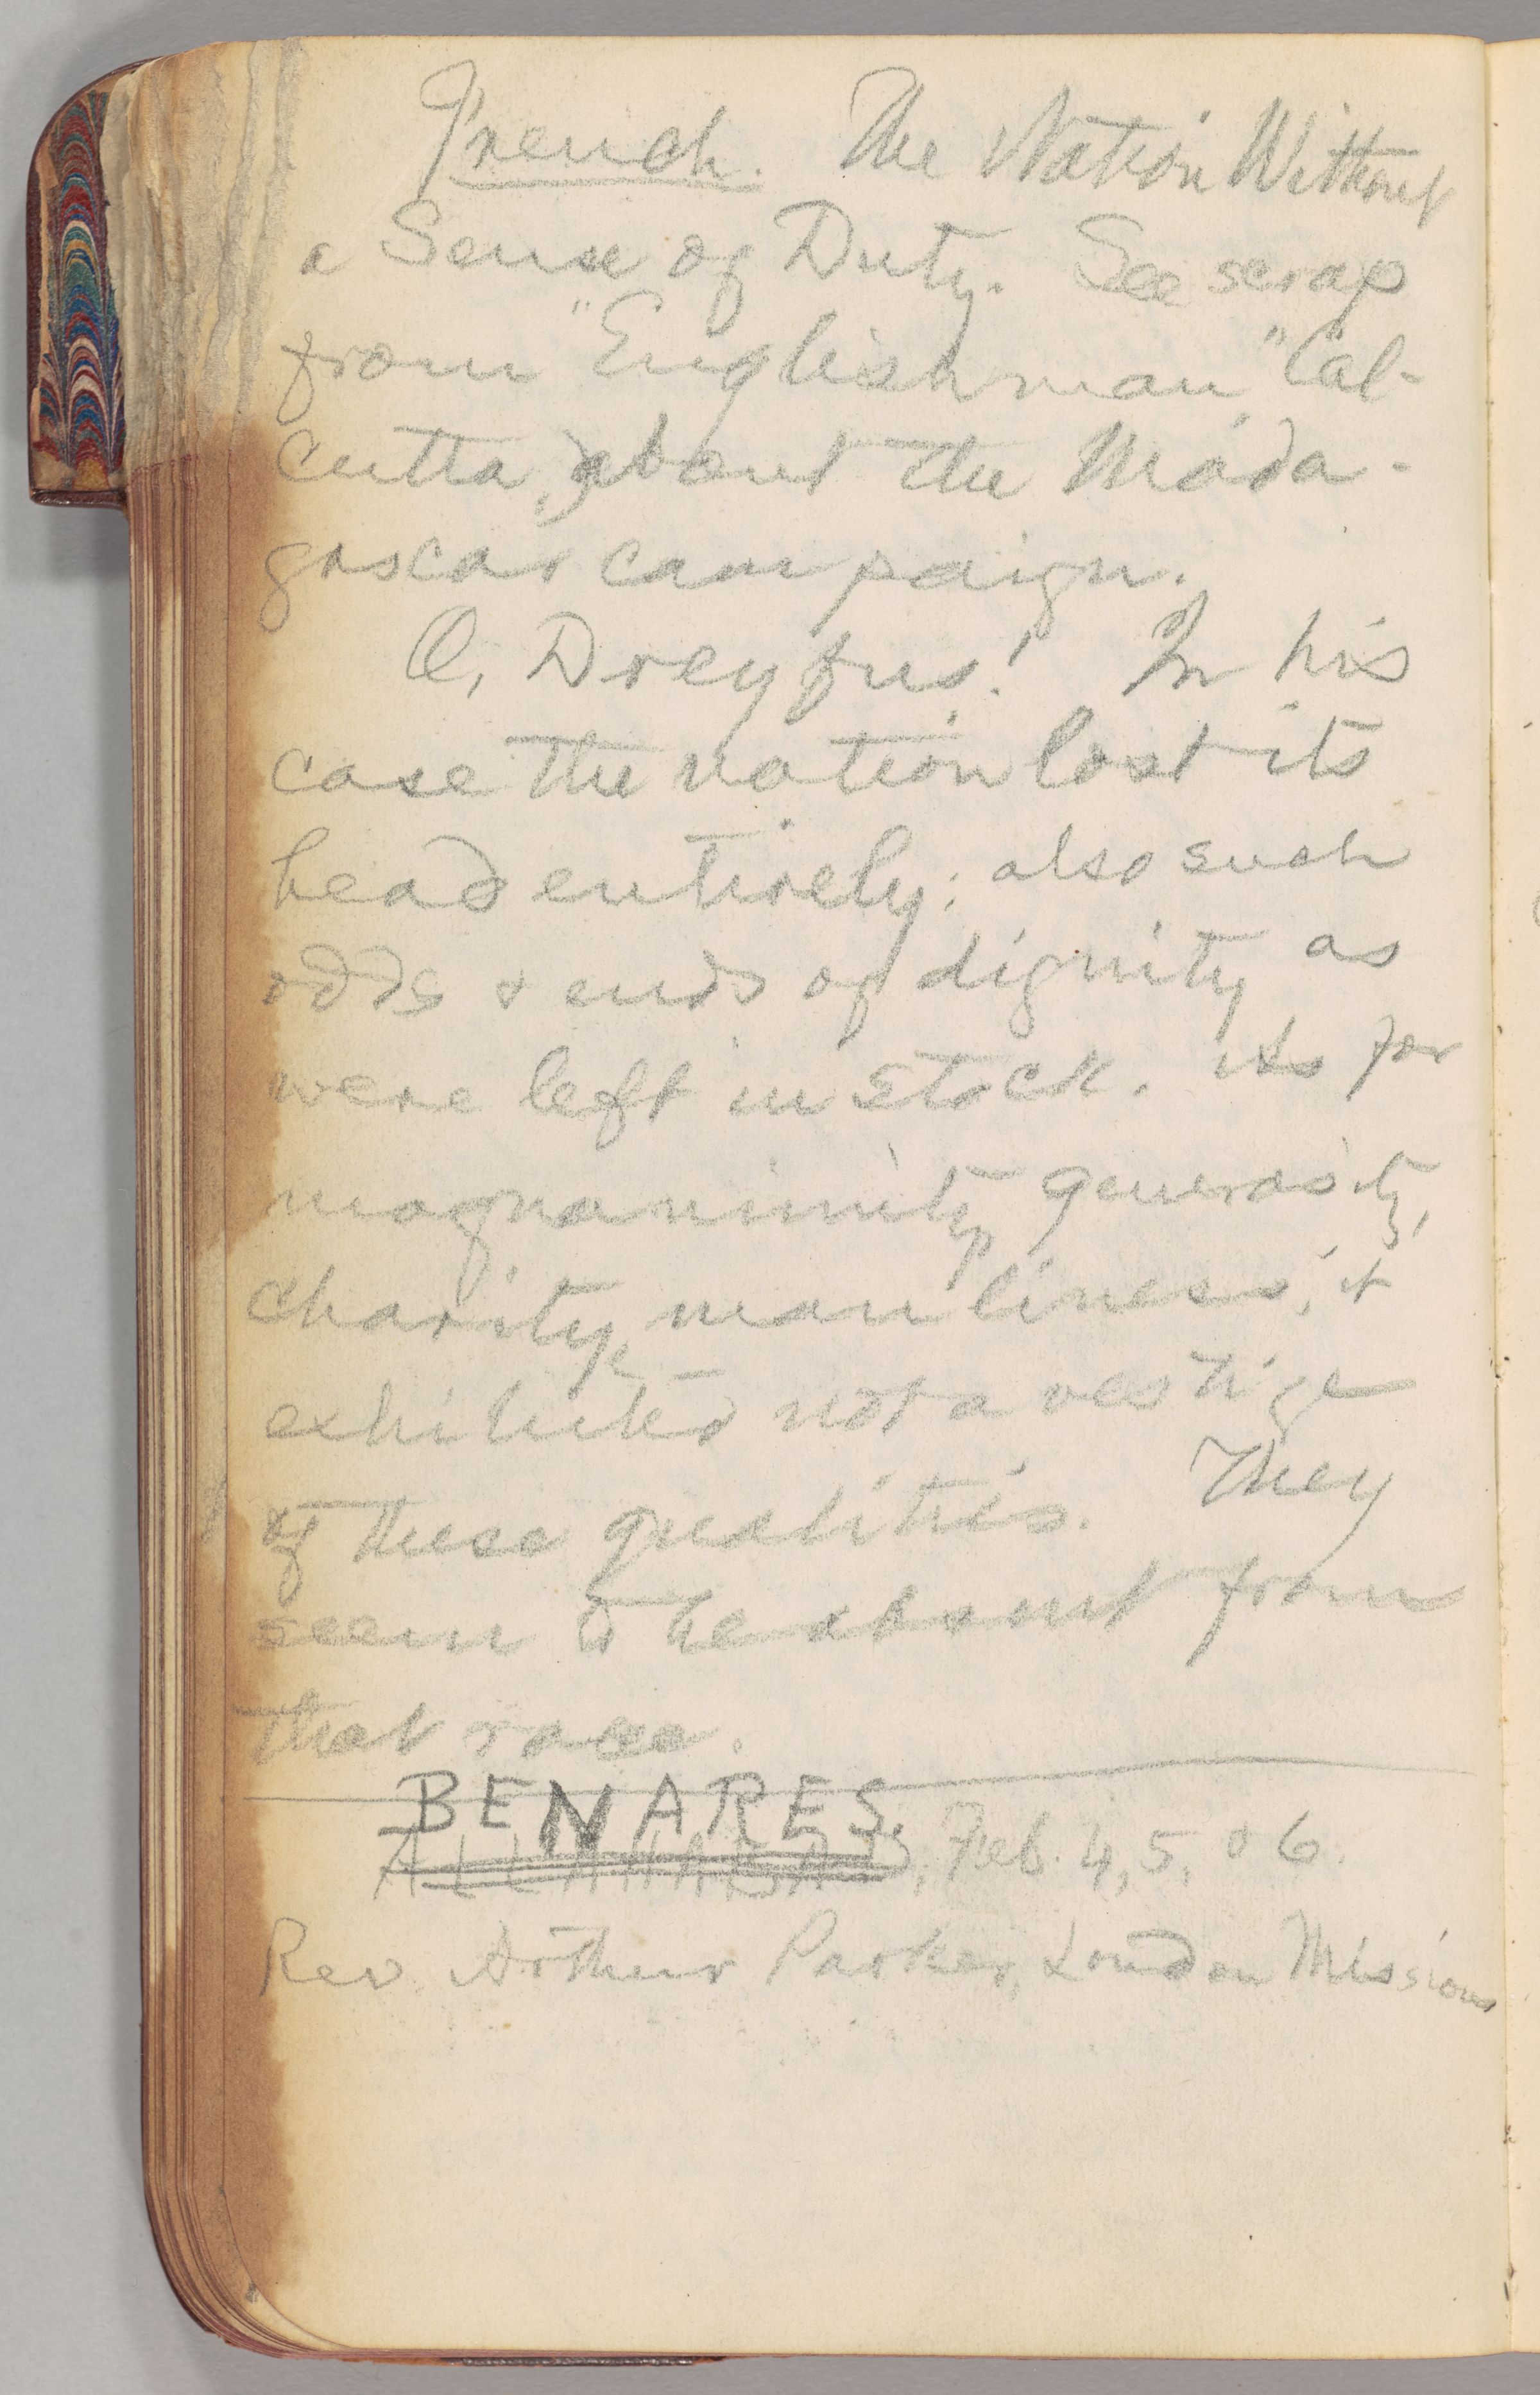 French. The Nation Without
a Sense of Duty. See scrap
from "Englishman," Cal-
cutta, about the Mada-
gascar campaign.
O, Dreyfus! In his
case the nation lost its
head entirely; also such
odds & ends of dignity as
were left in stock. As for
magnanimity, generosity,
charity, manliness, it
exhibited not a vestige
of these qualities. They
seem to be absent from
that race.
BENARES.
ALLAHABAD, Feb. 4, 5, & 6.
Rev. Arthur Parker, London Missions